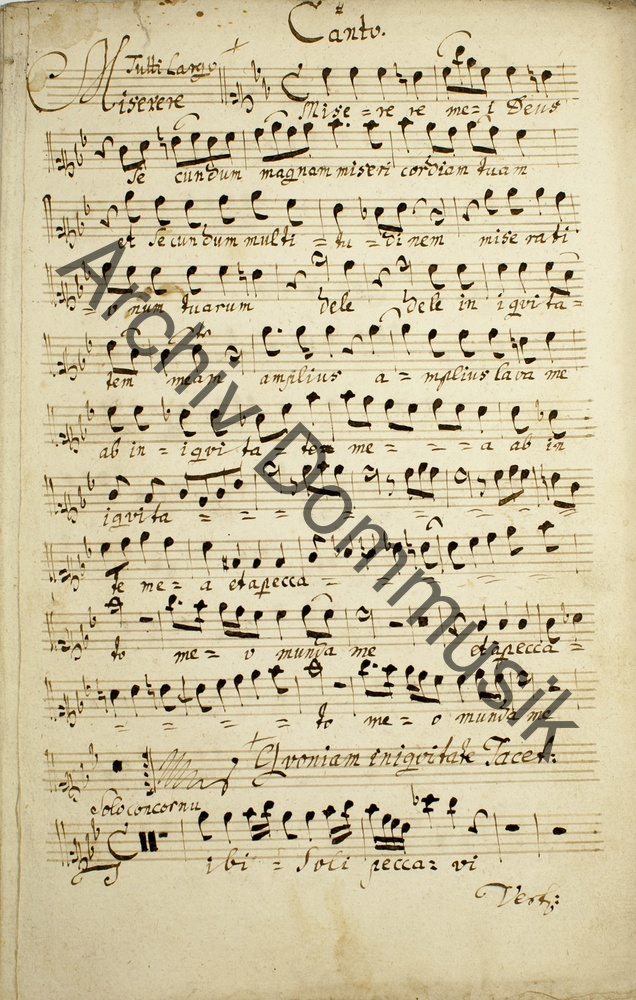 Canto.
Tutti Largo
Miserere
Mise = re re me = i Deus
Se cundum magnam miseri cordiam tuam
et Secundum multi = tu = di nem mise rati
= o num tuarum dele dele in iqvita =
tem meam amplius a = mplius lava me
ab in = iqvi ta = tem me = = = a ab in
iqvita = = = = = = = =
te me = a et a pecca = = = = =
to me = o munda me et a pecca =
= = = = to me = o munda me
Qvoniam iniqvitate Tacet:
Solo con cornu
ibi = Soli pecca = vi
Archiv Dommusik